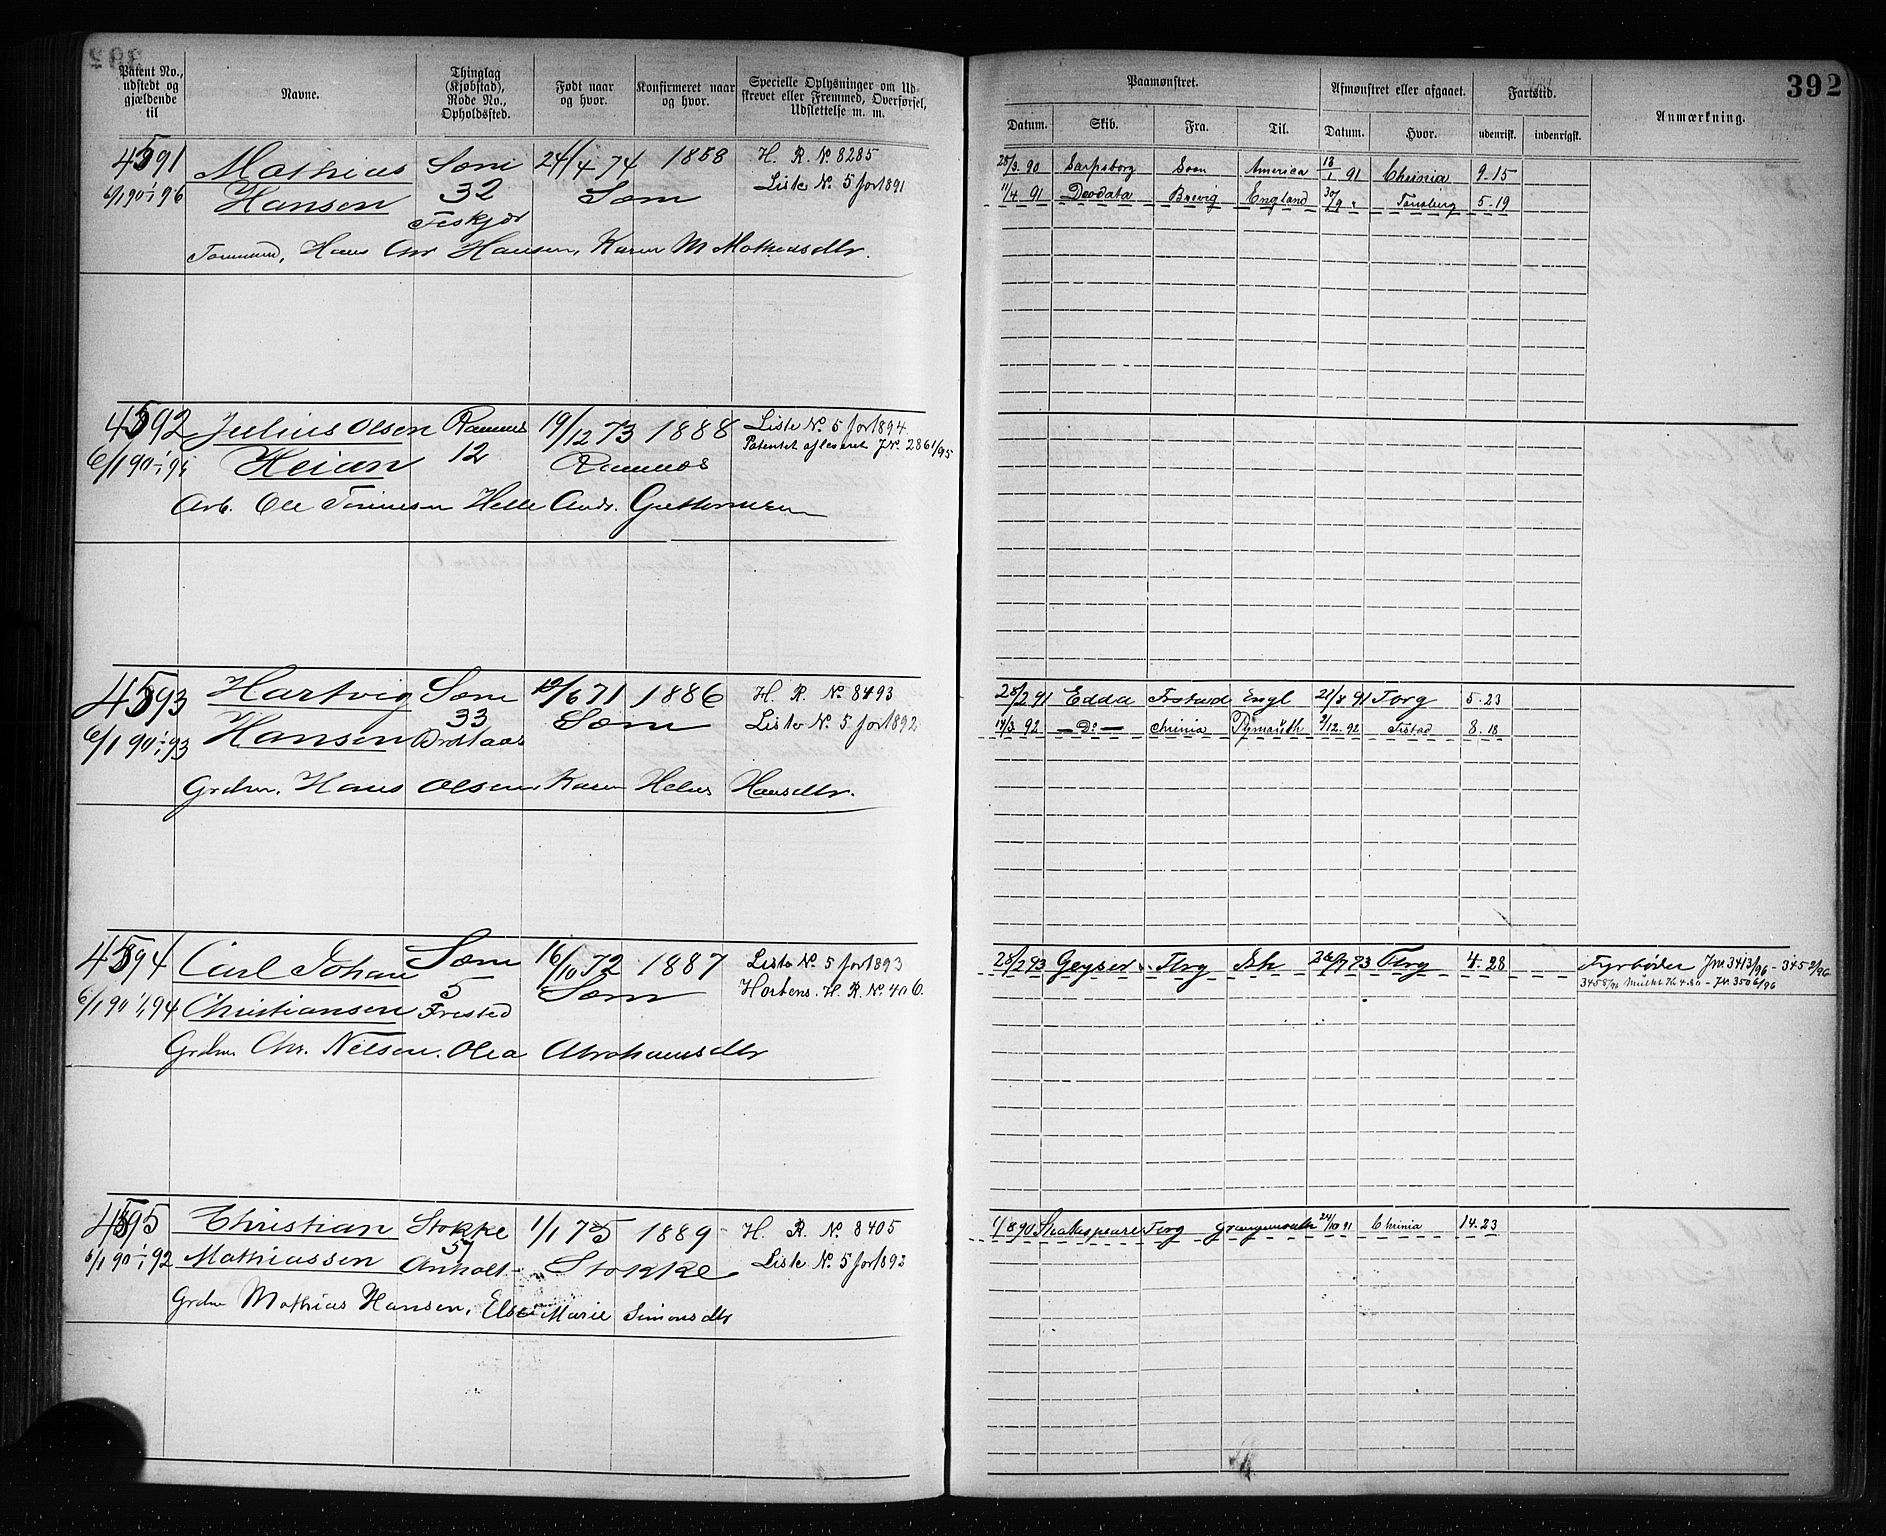 392
Patent No., udstedt og gjældende til
Navne.
Thinglag (Kjøbstad), Rode No., Opholdssted.
Født naar og hvor.
Konfirmeret naar og hvor.
Specielle Oplysninger om Udskrevet eller Fremmed, Overførsel, Udslettelse m. m.
Paamønstret.
Afmønstret eller afgaaet.
Fartstid.
Anmærkning.
Datum. Skib. Fra. Til. Datum. Hvor. udenrigsk. indenrigsk.
4591 Mathias Sæm 24/4 74 1888 H. R. No 8285
6/1 90 - 1/1 96 Hansen 32 Sæm Liste No 5 for 1891
Hans Chr Hansen, Karen M Mathiasdtr.
25/3 90 Sarpsborg Soon America 13/1 91 Chrinia 9.15
11/4 91 Deodata Brevig England 30/9 " Tønsberg 5.19
4592 Julius Olsen Ramnes 19/12 73 1888 Liste No 5 for 1894
Heian 12 Ramnes Patentet afleveret J No 2861/95
Arb. Ole Helle Andr. Guttormsen
4593 Hartvig Sæm 19/6 71 1886 H. R. No 8493
6/1 90 - 1/1 93 Hansen 33 Sæm Liste No 5 for 1892
Grdm. Hans Olsen, Karen Helene Hansdtr.
25/2 91 Edda Frstad Engl 21/8 91 Tbrg 5.23
17/3 92 — Do — Chrinia Plymouth 9/12 92 Frstad 8.18
4594 Carl Johan Sæm 16/10 72 1887 Liste No 5 for 1893
6/1 90 - 1/1 94 Christiansen 5 Sæm Hortens. H. R. No 406.
Frested
Grdm Chr. Nilsen. Olea Abrahamsdtr
25/2 93 Geyser Tbrg Ish 26/7 93 Tbrg 4.28 Fyrbøder Jnr 3413/96 - 3452/96
4595 Christian Stokke 1/1 75 1889 H. R. No 8405
6/1 90 - 1/1 92 Mathiassen 57 Stokke Liste No 5 for 1893
Anholt
Grdm Mathias Hansen, Else Marie Simonsdtr
1/8 90 Shakespeare Tbrg Grangemouth 24/10 91 Chrinia 14.23